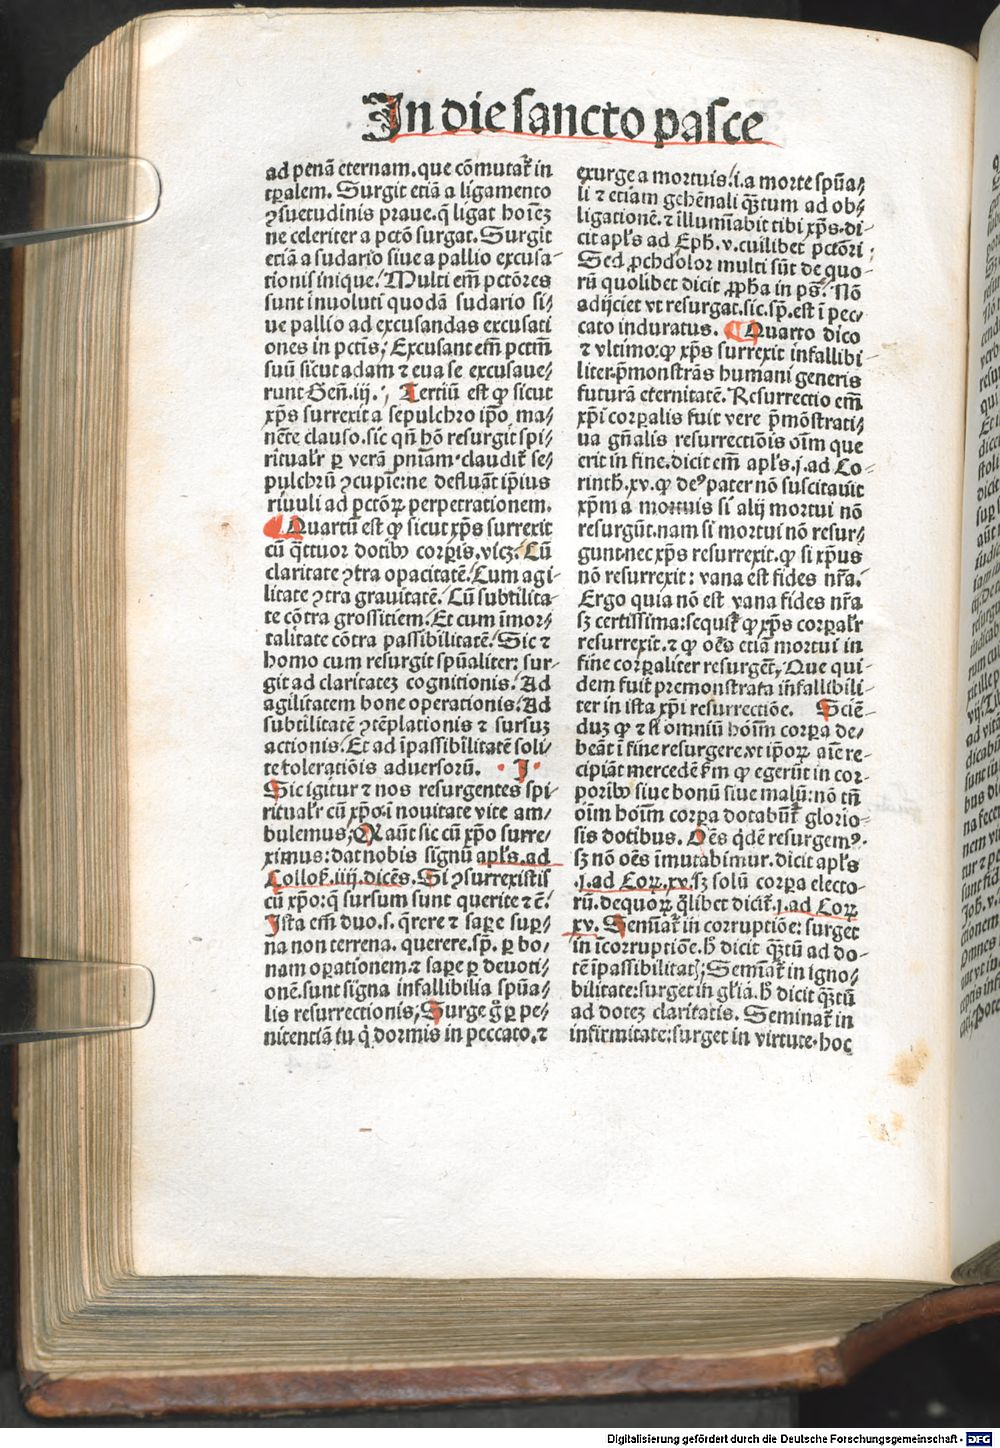 In die sancto pasce
ad penã eternam. que cõmutat̃ in
tꝑalem. Surgit etiã a ligamento
ꝯsuetudinis praue. q̃ ligat hoïeꝫ
ne celeriter a pctõ surgat. Surgit
etiã a sudario siue a pallio excusa-
tionis inique. Multi em̃ pctõres
sunt inuoluti quodã sudario si/
ue pallio ad excusandas excusati
ones in pctïs; Excusant em̃ pctm̃
suũ sicut adam ⁊ eua se excusaue/
runt Gen̄. iij. Tertiũ est ꝙ sicut
xp̃s surrexit a sepulchro ip̃o. ma/
nẽte clauso. sic qñ hõ resurgit spi/
ritualr̃ ꝑ verã pñiam. claudit̃ se/
pulchrũ ꝯcupĩe: ne defluãt ip̃ius
riuuli ad pctõꝝ perpetrationem.
Quartũ est ꝙ sicut xp̃s surrexit
cũ q̃ttuor dotibꝰ corꝑis. vicꝫ. Cũ
claritate ꝯtra opacitatẽ. Cum agi/
litate ꝯtra grauitatẽ. Cũ subtilita-
te cõtra grossitiem. Et cum ĩmor/
talitate cõtra passibilitatẽ. Sic ⁊
homo cum resurgit spũaliter: sur-
git ad claritateꝫ cognitionis. Ad
agilitatem bone operationis. Ad
subtilitatẽ ꝯtẽplationis ⁊ sursuꝫ
actionis. Et ad ĩpassibilitatẽ soli/
te toleratiõis aduersorũ. I
Sic igitur ⁊ nos resurgentes spi-
ritualr̃ cũ xp̃o. i. nouitate vite am-
bulemus; Q aũt sic cũ xp̃o surre/
ximus: dat nobis signũ apl̃s. ad
Colloƈ. iiij. dicẽs. Si ꝯsurrexistis
cũ xp̃o: q̃ sursum sunt querite ⁊ c̃.
Ista em̃ duo. s. q̃rere ⁊ saꝑe suꝑ/
na non terrena. querere. sp̃. ꝑ bo/
nam oꝑationem. ⁊ saꝑe ꝑ deuoti/
onẽ. sunt signa infallibilia spũa/
lis resurrectionis; Surge g̊ ꝑ pe/
nitentiã tu q̇ dormis in peccato. ⁊
exurge a mortuis. i. a morte spũa/
li ⁊ etiam gehẽnali q̃ꝫtum ad ob/
ligationẽ. ⁊ illum̃iabit tibi xp̃s. di-
cit apl̃s ad Eph̃. v. cuilibet pctõri;
Sed ꝓchdolor multi sũt de quo-
rũ quolibet dicit ꝓph̃a in ps̃. Nõ
adijciet vt resurgat. sic. sp̃. est ĩ pec/
cato induratus. Quarto dico
⁊ vltimo: ꝙ xp̃s surrexit infallibi-
liter. p̃monstrãs humani generis
futurã eternitatẽ. Resurrectio em̃
xp̃i corꝑalis fuit vere p̃mõstrati/
ua gñalis resurrectiõis oĩm que
erit in fine. dicit em̃ apl̃s. j. ad Co-
rinth̃. xv. ꝙ deꝰ pater nõ suscitauit
xp̃m a mortuis si alij mortui nõ
resurgũt. nam si mortui nõ resur/
gunt. nec xp̃s resurrexit. ꝙ si xp̃us
nõ resurrexit: vana est fides nr̃a.
Ergo quia nõ est vana fides nr̃a
sꝫ certissima: sequit̃ ꝙ xp̃s corꝑalr̃
resurrexit. ⁊ ꝙ oẽs etiã mortui in
fine corꝑaliter resurgẽt; Que qui-
dem fuit premonstrata infallibili-
ter in ista xp̃i resurrectiõe. Sciẽ-
duꝫ ꝙ ⁊ si omniũ hoĩm corꝑa de/
beãt ĩ fine resurgere vt ip̃oꝝ aĩe re-
cipiãt mercedẽ ẜm ꝙ egerũt in cor-
poribꝰ siue bonũ siue malũ: nõ tñ
oĩm hoĩm corꝑa dotabũt̃ glorio-
sis dotibus. Oẽs q̇dẽ resurgemꝰ.
sꝫ nõ oẽs ĩmutabimur. dicit apl̃s
.j. ad Corꝝ. xv. sꝫ solũ corꝑa electo-
rũ. de quoꝝ q̃libet dicit̃. j. ad Corꝝ
xv. Semĩat̃ in corruptiõe: surget
in ĩcorruptiõe. h̃ dicit q̃ꝫtũ ad do-
tẽ ĩpassibilitat̃; Semĩat̃ in igno-
bilitate: surget in gl̃ia. h̃ dicit q̃ꝫtũ
ad doteꝫ claritatis. Seminat̃ in
infirmitate: surget in virtute. hoc
Digitalisierung gefördert durch die Deutsche Forschungsgemeinschaft - DFG